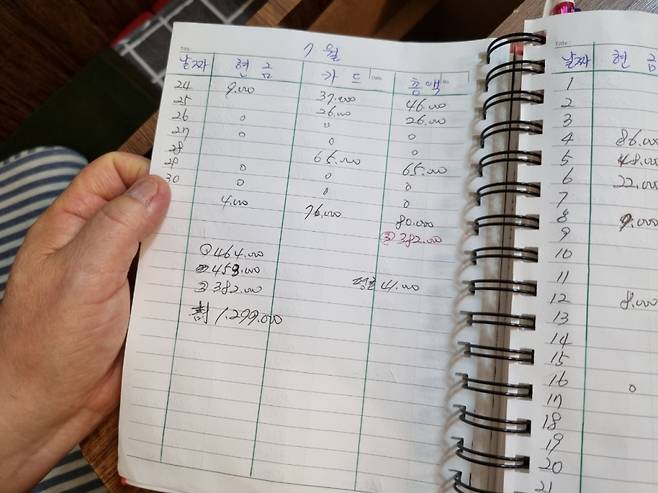 7월
날짜 현금 카드 총액
24 9.000 37.000 46.000
25 0 26.000 26.000
26 0 0 0
27 0 0 0
28 0 65.000 65.000
29 0 0 0
30 4.000 76.000 80.000
③ 382.000
① 464.000
② 459.000
③ 382.000 41.000
총 1.299.000
날짜 현금
1
2
3
4 86.000
5 48.000
6 22.000
7
8 9.000
9
10
11
12 8.000
13
14
15
16 0
17
18
19
20
21